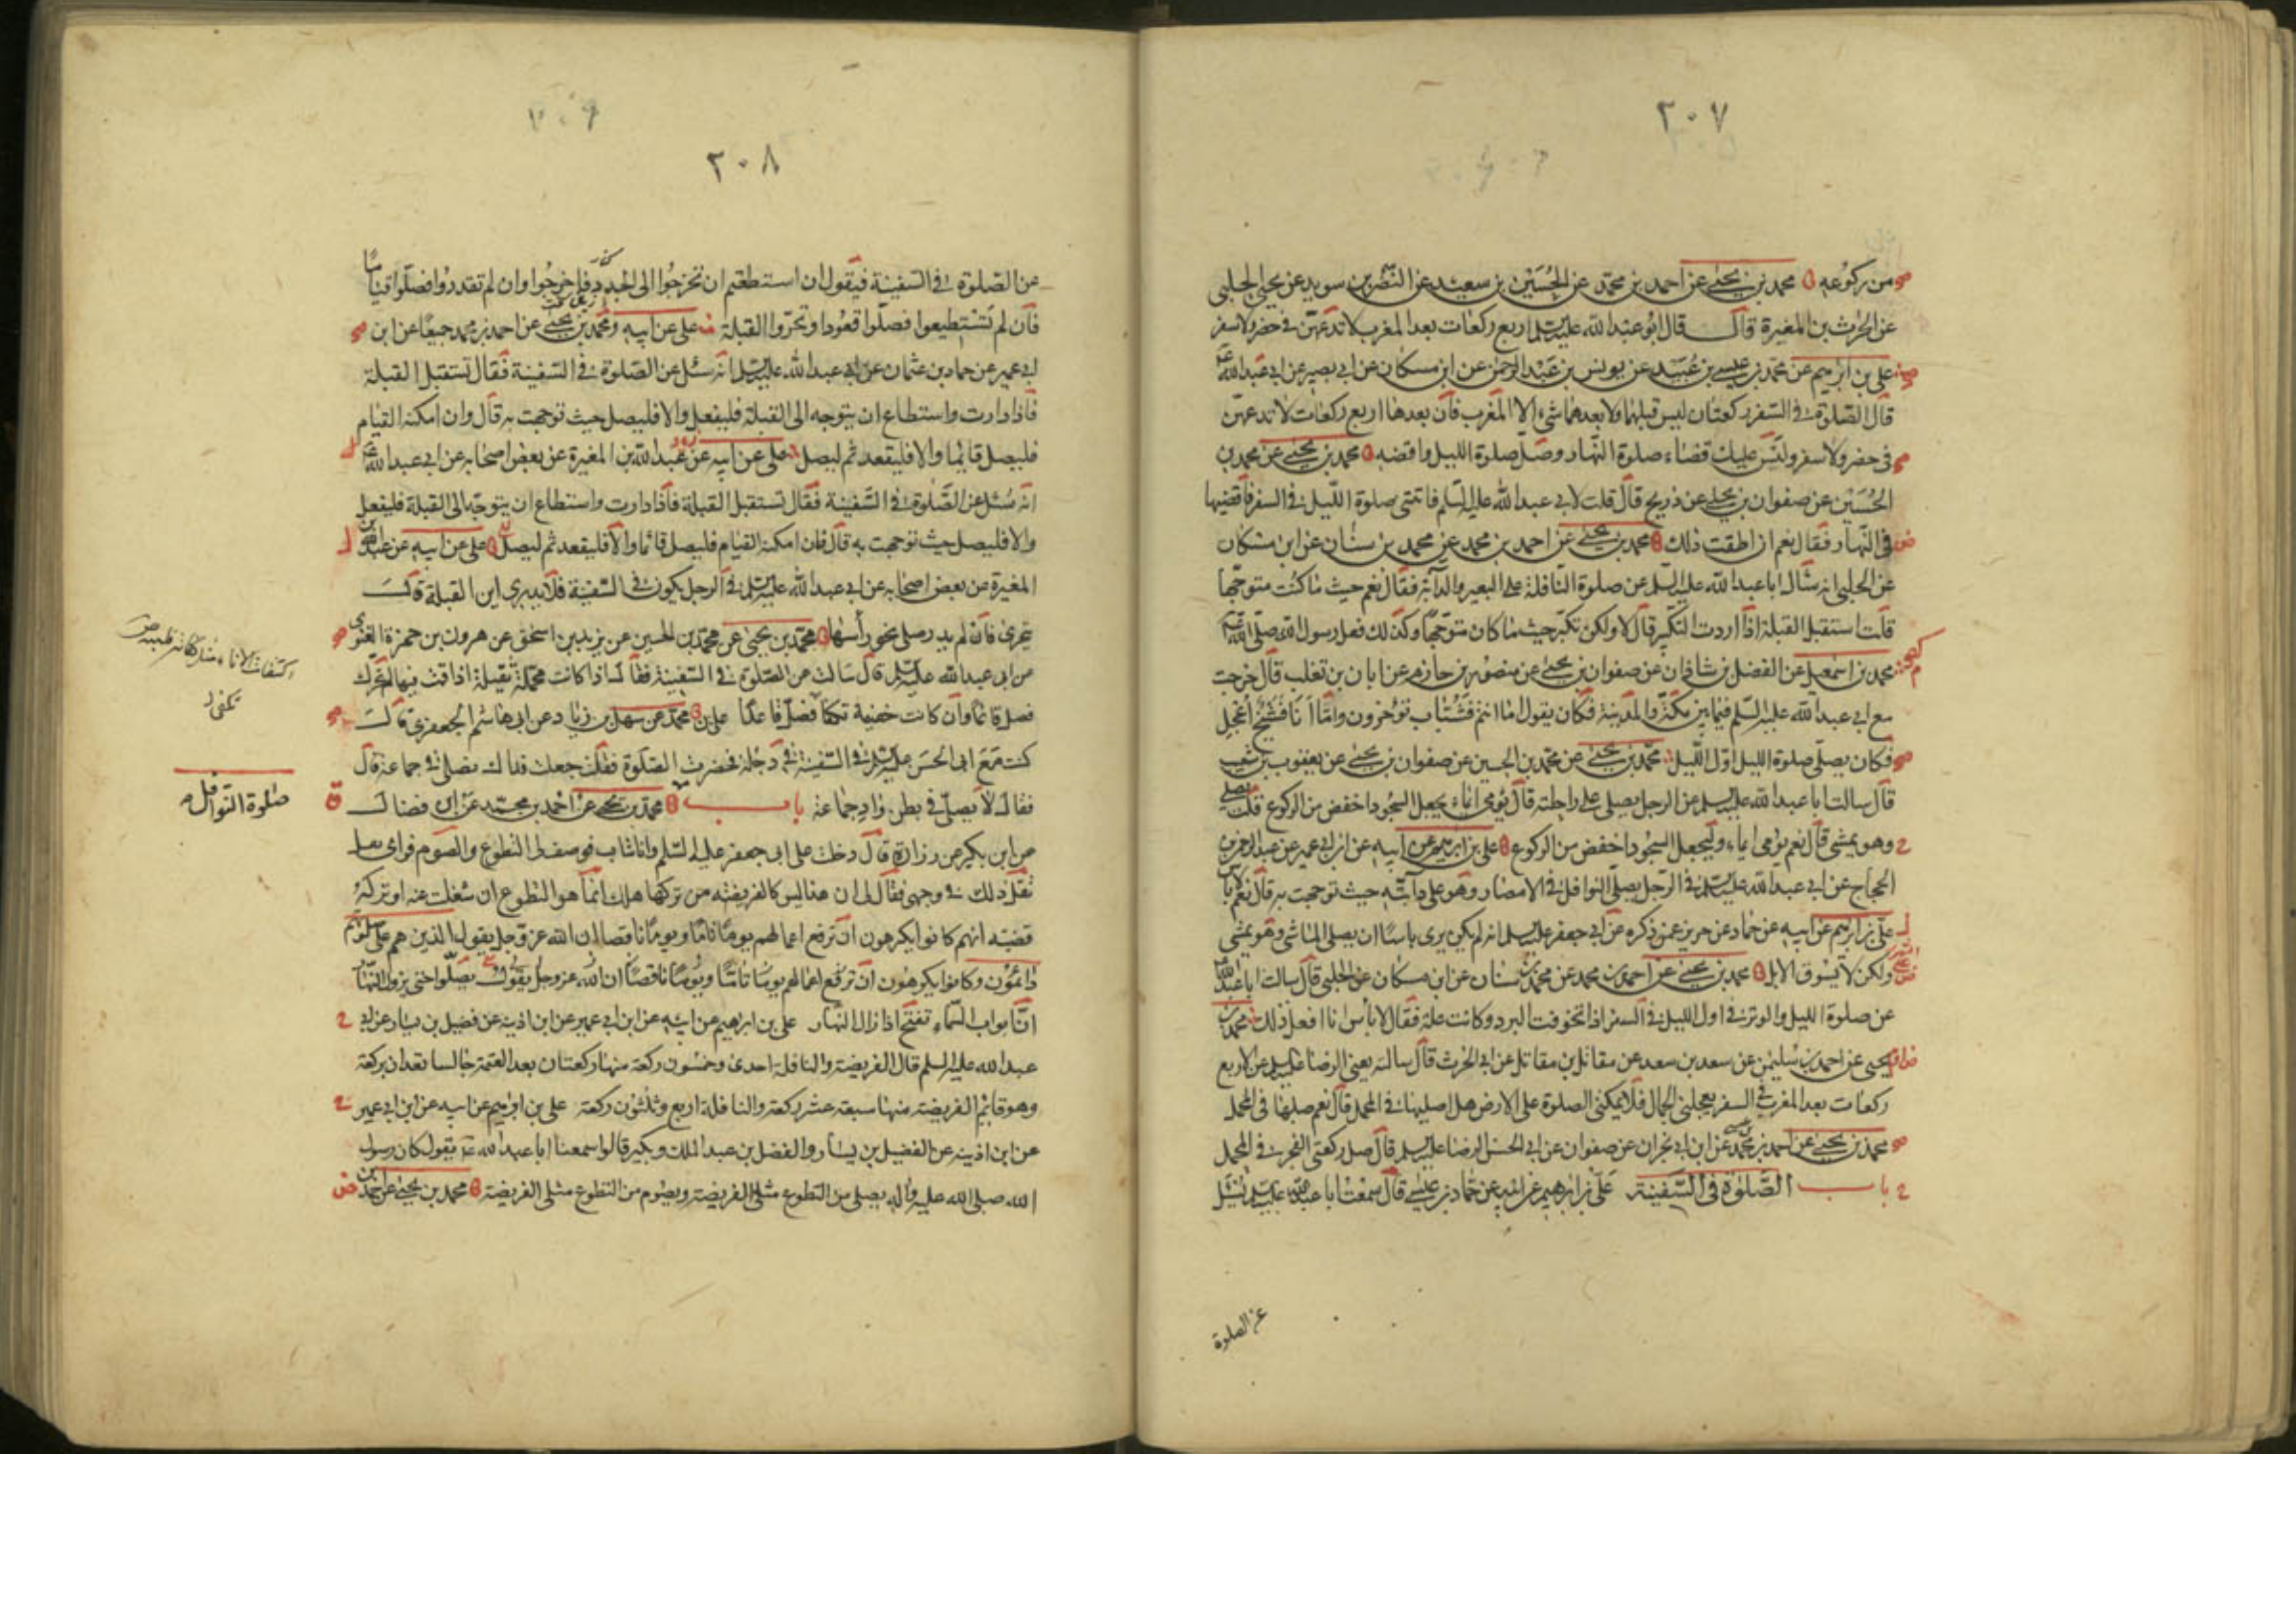 ٢٠٧
من ركوعه محمد بن يحيى عن احمد بن محمد عن الحسين بن سعيد عن النضر بن سويد عن يحيى الحلبى
عن الحرث بن المغيرة قال قال ابو عبد الله عليه السلم اربع ركعات بعد المغرب لا تدعهن فى حضر ولا سفر
على بن ابرهيم عن محمد بن عيسى بن عبيد عن يونس بن عبد الرحمن عن ابن مسكان عن ابى بصير عن ابى عبد الله
قال الصلوة فى السفر ركعتان ليس قبلهما ولا بعدهما شىء الا المغرب فان بعدها اربع ركعات لا تدعهن
فى حضر ولا سفر وليس عليك قضاء صلوة النهار وصل صلوة الليل واقضه محمد بن يحيى عن محمد بن
الحسين عن صفوان بن يحيى عن ذريح قال قلت لابى عبد الله عليه السلم فاتتنى صلوة الليل فى السفر فاقضيها
فى النهار فقال نعم ان اطقت ذلك محمد بن يحيى عن احمد بن محمد عن محمد بن سنان عن ابن مسكان
عن الحلبى انه سال ابا عبد الله عليه السلم عن صلوة النافلة على البعير والدابة فقال نعم حيث ما كنت متوجها
قلت استقبل القبلة اذا اردت التكبير قال لا ولكن تكبر حيث ما كان متوجها وكذلك فعل رسول الله صلى الله
محمد بن اسمعيل عن الفضل بن شاذان عن صفوان بن يحيى عن منصور بن حازم عن ابان بن تغلب قال خرجت
مع ابى عبد الله عليه السلم فيما بين مكة والمدينة فكان يقول اما انتم فشباب تؤخرون واما انا فشيخ اعجل
فكان يصلى صلوة الليل اول الليل محمد بن يحيى عن محمد بن الحسين عن صفوان بن يحيى عن يعقوب بن شعيب
قال سالت ابا عبد الله عليه السلم عن الرجل يصلى على راحلته قال يؤمى ايماء يجعل السجود اخفض من الركوع قلت يصلى
وهو يمشى قال نعم يؤمى ايماء وليجعل السجود اخفض من الركوع على بن ابرهيم عن ابيه عن ابن ابى عمير عن عبد الرحمن بن
الحجاج عن ابى عبد الله عليه السلم فى الرجل يصلى النوافل فى الامصار وهو على دابته حيث توجهت به قال نعم لا باس
على بن ابرهيم عن ابيه عن حماد عن حريز عمن ذكره عن ابى جعفر عليه السلم انه لم يكن يرى باسا ان يصلى الماشى وهو يمشى
ولكن لا يسوق الابل محمد بن يحيى عن احمد بن محمد عن محمد بن سنان عن ابن مسكان عن الحلبى قال سالت ابا عبد الله
عن صلوة الليل والوتر فى اول الليل فى السفر اذا تخوفت البرد وكانت علة فقال لا باس انا افعل ذلك محمد بن
يحيى عن احمد بن سليمن عن سعد بن سعد عن مقاتل بن مقاتل عن ابى الحرث قال سالته يعنى الرضا عليه السلم عن الاربع
ركعات بعد المغرب فى السفر يعجلنى الجمال فلا يمكننى الصلوة على الارض هل اصليها فى المحمل قال نعم صلها فى المحمل
محمد بن يحيى عن احمد بن محمد عن ابن ابى نجران عن صفوان عن ابى الحسن الرضا عليه السلم قال صل ركعتى الفجر فى المحمل
باب الصلوة فى السفينة على بن ابرهيم عن ابيه عن حماد بن عيسى قال سمعت ابا عبد الله عليه السلم يسئل
عن الصلوة
٢٠٨
عن الصلوة فى السفينة فيقول ان استطعتم ان تخرجوا الى الجدد فاخرجوا وان لم تقدروا فصلوا قياما
فان لم تستطيعوا فصلوا قعودا وتحروا القبلة على عن ابيه ومحمد بن يحيى عن احمد بن محمد جميعا عن ابن
ابى عمير عن حماد بن عثمان عن ابى عبد الله عليه السلم انه سئل عن الصلوة فى السفينة فقال تستقبل القبلة
فاذا دارت واستطاع ان يتوجه الى القبلة فليفعل والا فليصل حيث توجهت به قال وان امكنه القيام
فليصل قائما والا فليقعد ثم ليصل على عن ابيه عن عبد الله بن المغيرة عن بعض اصحابه عن ابى عبد الله
انه سئل عن الصلوة فى السفينة فقال تستقبل القبلة فاذا دارت واستطاع ان يتوجه الى القبلة فليفعل
والا فليصل حيث توجهت به قال فان امكنه القيام فليصل قائما والا فليقعد ثم ليصل على عن ابيه عن عبد الله بن
المغيرة عن بعض اصحابه عن ابى عبد الله عليه السلم فى الرجل يكون فى السفينة فلا يدرى اين القبلة قال
يتحرى فان لم يدر صلى نحو رأسها محمد بن يحيى عن محمد بن الحسين عن يزيد بن اسحق عن هرون بن حمزة الغنوى
عن ابى عبد الله عليه السلم قال سالته عن الصلوة فى السفينة فقال اذا كانت محملة ثقيلة اذا قمت فيها لم تحرك
فصل قائما وان كانت خفيفة تكفا فصل قاعدا على بن محمد عن سهل بن زياد عن ابى هاشم الجعفرى قال
كنت مع ابى الحسن عليه السلم فى السفينة فى دجلة فحضرت الصلوة فقلت جعلت فداك نصلى فى جماعة قال
فقال لا يصلى فى بطن واد جماعة باب محمد بن يحيى عن احمد بن محمد عن ابن فضال
صلوة النوافل
عن ابن بكير عن زرارة قال دخلت على ابى جعفر عليه السلم وانا شاب فوصف لى التطوع والصوم فراى
ثقل ذلك فى وجهى فقال لى ان هذا ليس كالفريضة من تركها هلك انما هو التطوع ان شغلت عنه او تركته
قضيته انهم كانوا يكرهون ان ترفع اعمالهم يوما تاما ويوما ناقصا ان الله عز وجل يقول الذين هم على صلوتهم
دائمون وكانوا يكرهون ان ترفع اعمالهم يوما تاما ويوما ناقصا ان الله عز وجل يقول يصلوا حتى يزول النهار
ان ابواب السماء تفتح اذا زال النهار على بن ابرهيم عن ابيه عن ابن ابى عمير عن ابن اذينة عن فضيل بن يسار عن ابى
عبد الله عليه السلم قال الفريضة والنافلة احدى وخمسون ركعة منها ركعتان بعد العتمة جالسا تعدان بركعة
وهو قائم الفريضة منها سبعة عشر ركعة والنافلة اربع وثلثون ركعة على بن ابرهيم عن ابيه عن ابن ابى عمير
عن ابن اذينة عن الفضيل بن يسار والفضل بن عبد الملك وبكير قالوا سمعنا ابا عبد الله يقول كان رسول
الله صلى الله عليه واله يصلى من التطوع مثلى الفريضة ويصوم من التطوع مثلى الفريضة محمد بن يحيى عن احمد بن